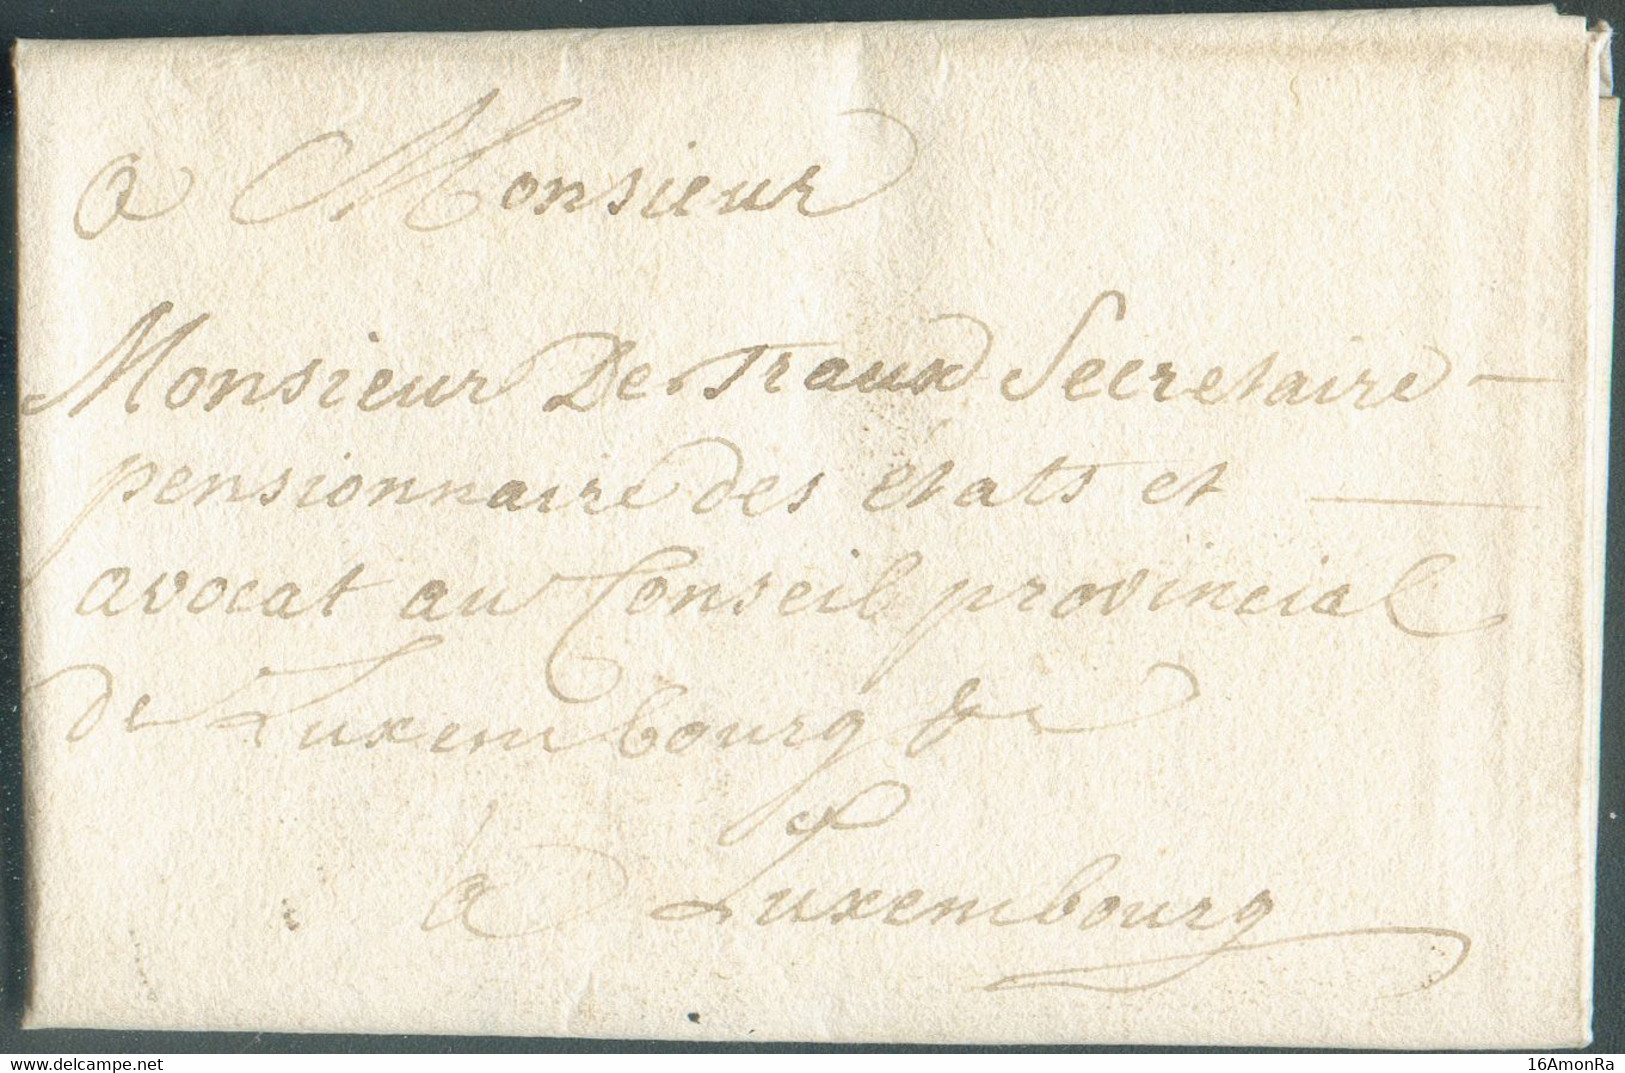 a Monsieur
Monsieur De Traux Secretaire —
pensionnaire des états et —
avocat au Conseil provincial
de Luxembourg &c
à Luxembourg
delcampe.net
16AmonRa